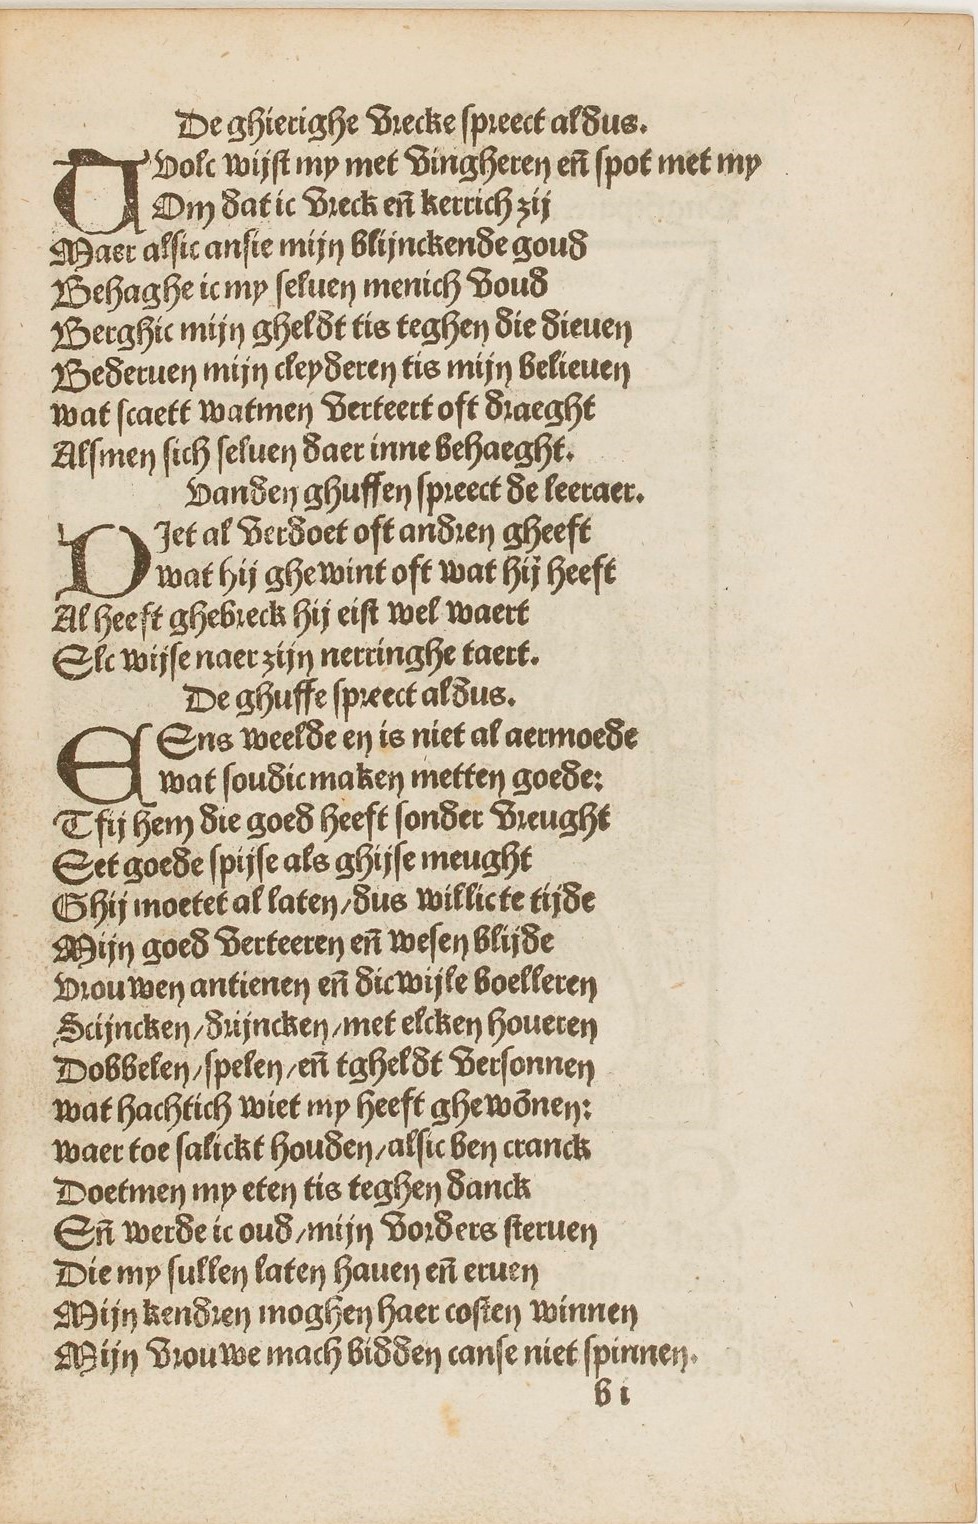 De ghierighe vrecke spreect aldus.
TVolc wijst my met vingheren eñ spot met my
Om dat ic vreck eñ kerrich zij
Maer alsic ansie mijn blijnckende goud
Behaghe ic my seluen menich voud
Berghic mijn gheldt tis teghen die dieuen
Bederuen mijn cleyderen tis mijn belieuen
wat scaett watmen verteert oft draeght
Alsmen sich seluen daer inne behaeght.
Vanden ghuffen spreect de leeraer.
DIet al verdoet oft andren gheeft
wat hij ghewint oft wat hij heeft
Al heeft ghebreck hij eist wel waert
Elc wijse naer zijn nerringhe taert.
De ghuffe spreect aldus.
EEns weelde en is niet al aermoede
wat soudic maken metten goede:
Tfij hem die goed heeft sonder vreught
Eet goede spijse als ghijse meught
Ghij moetet al laten/dus willic te tijde
Mijn goed verteeren eñ wesen blijde
Vrouwen antienen eñ dicwijle boelleren
Scijncken/drijncken/met elcken houeren
Dobbelen/spelen/eñ tgheldt versonnen
wat hachtich wiet my heeft ghewõnen:
waer toe salickt houden/alsic ben cranck
Doetmen my eten tis teghen danck
Eñ werde ic oud/mijn vorders steruen
Die my sullen laten hauen eñ eruen
Mijn kendren moghen haer costen winnen
Mijn vrouwe mach bidden canse niet spinnen.
b i